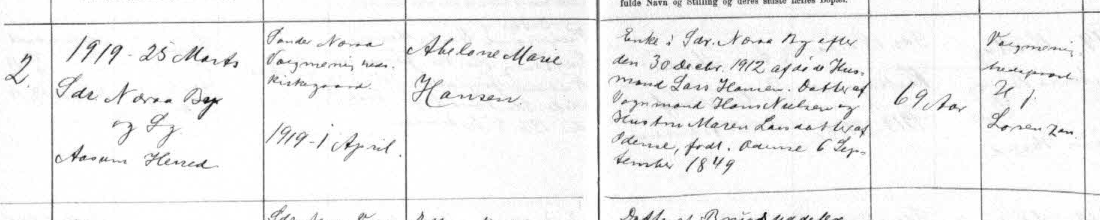 fulde Navn og Stilling og deres sidste fælles Bopæl.
2.
1919 - 25 Marts
Sdr Næraa By
og Sg.
Aasum Herred
Sønder Næraa
Valgmenigheds.
Kirkegaard.
1919-1 April.
Abelone Marie
Hansen.
Enke i Sdr. Næraa By efter
den 30 Decbr. 1912 afdøde Hus-
mand Lars Hansen. Datter af
Vognmand Hans Nielsen og
Hustru Maren Larsdatter af
Odense, født. Odense 6 Sep-
tember 1849
69 Aar
Valgmenig
hedspræst
H J
Lorenzen.